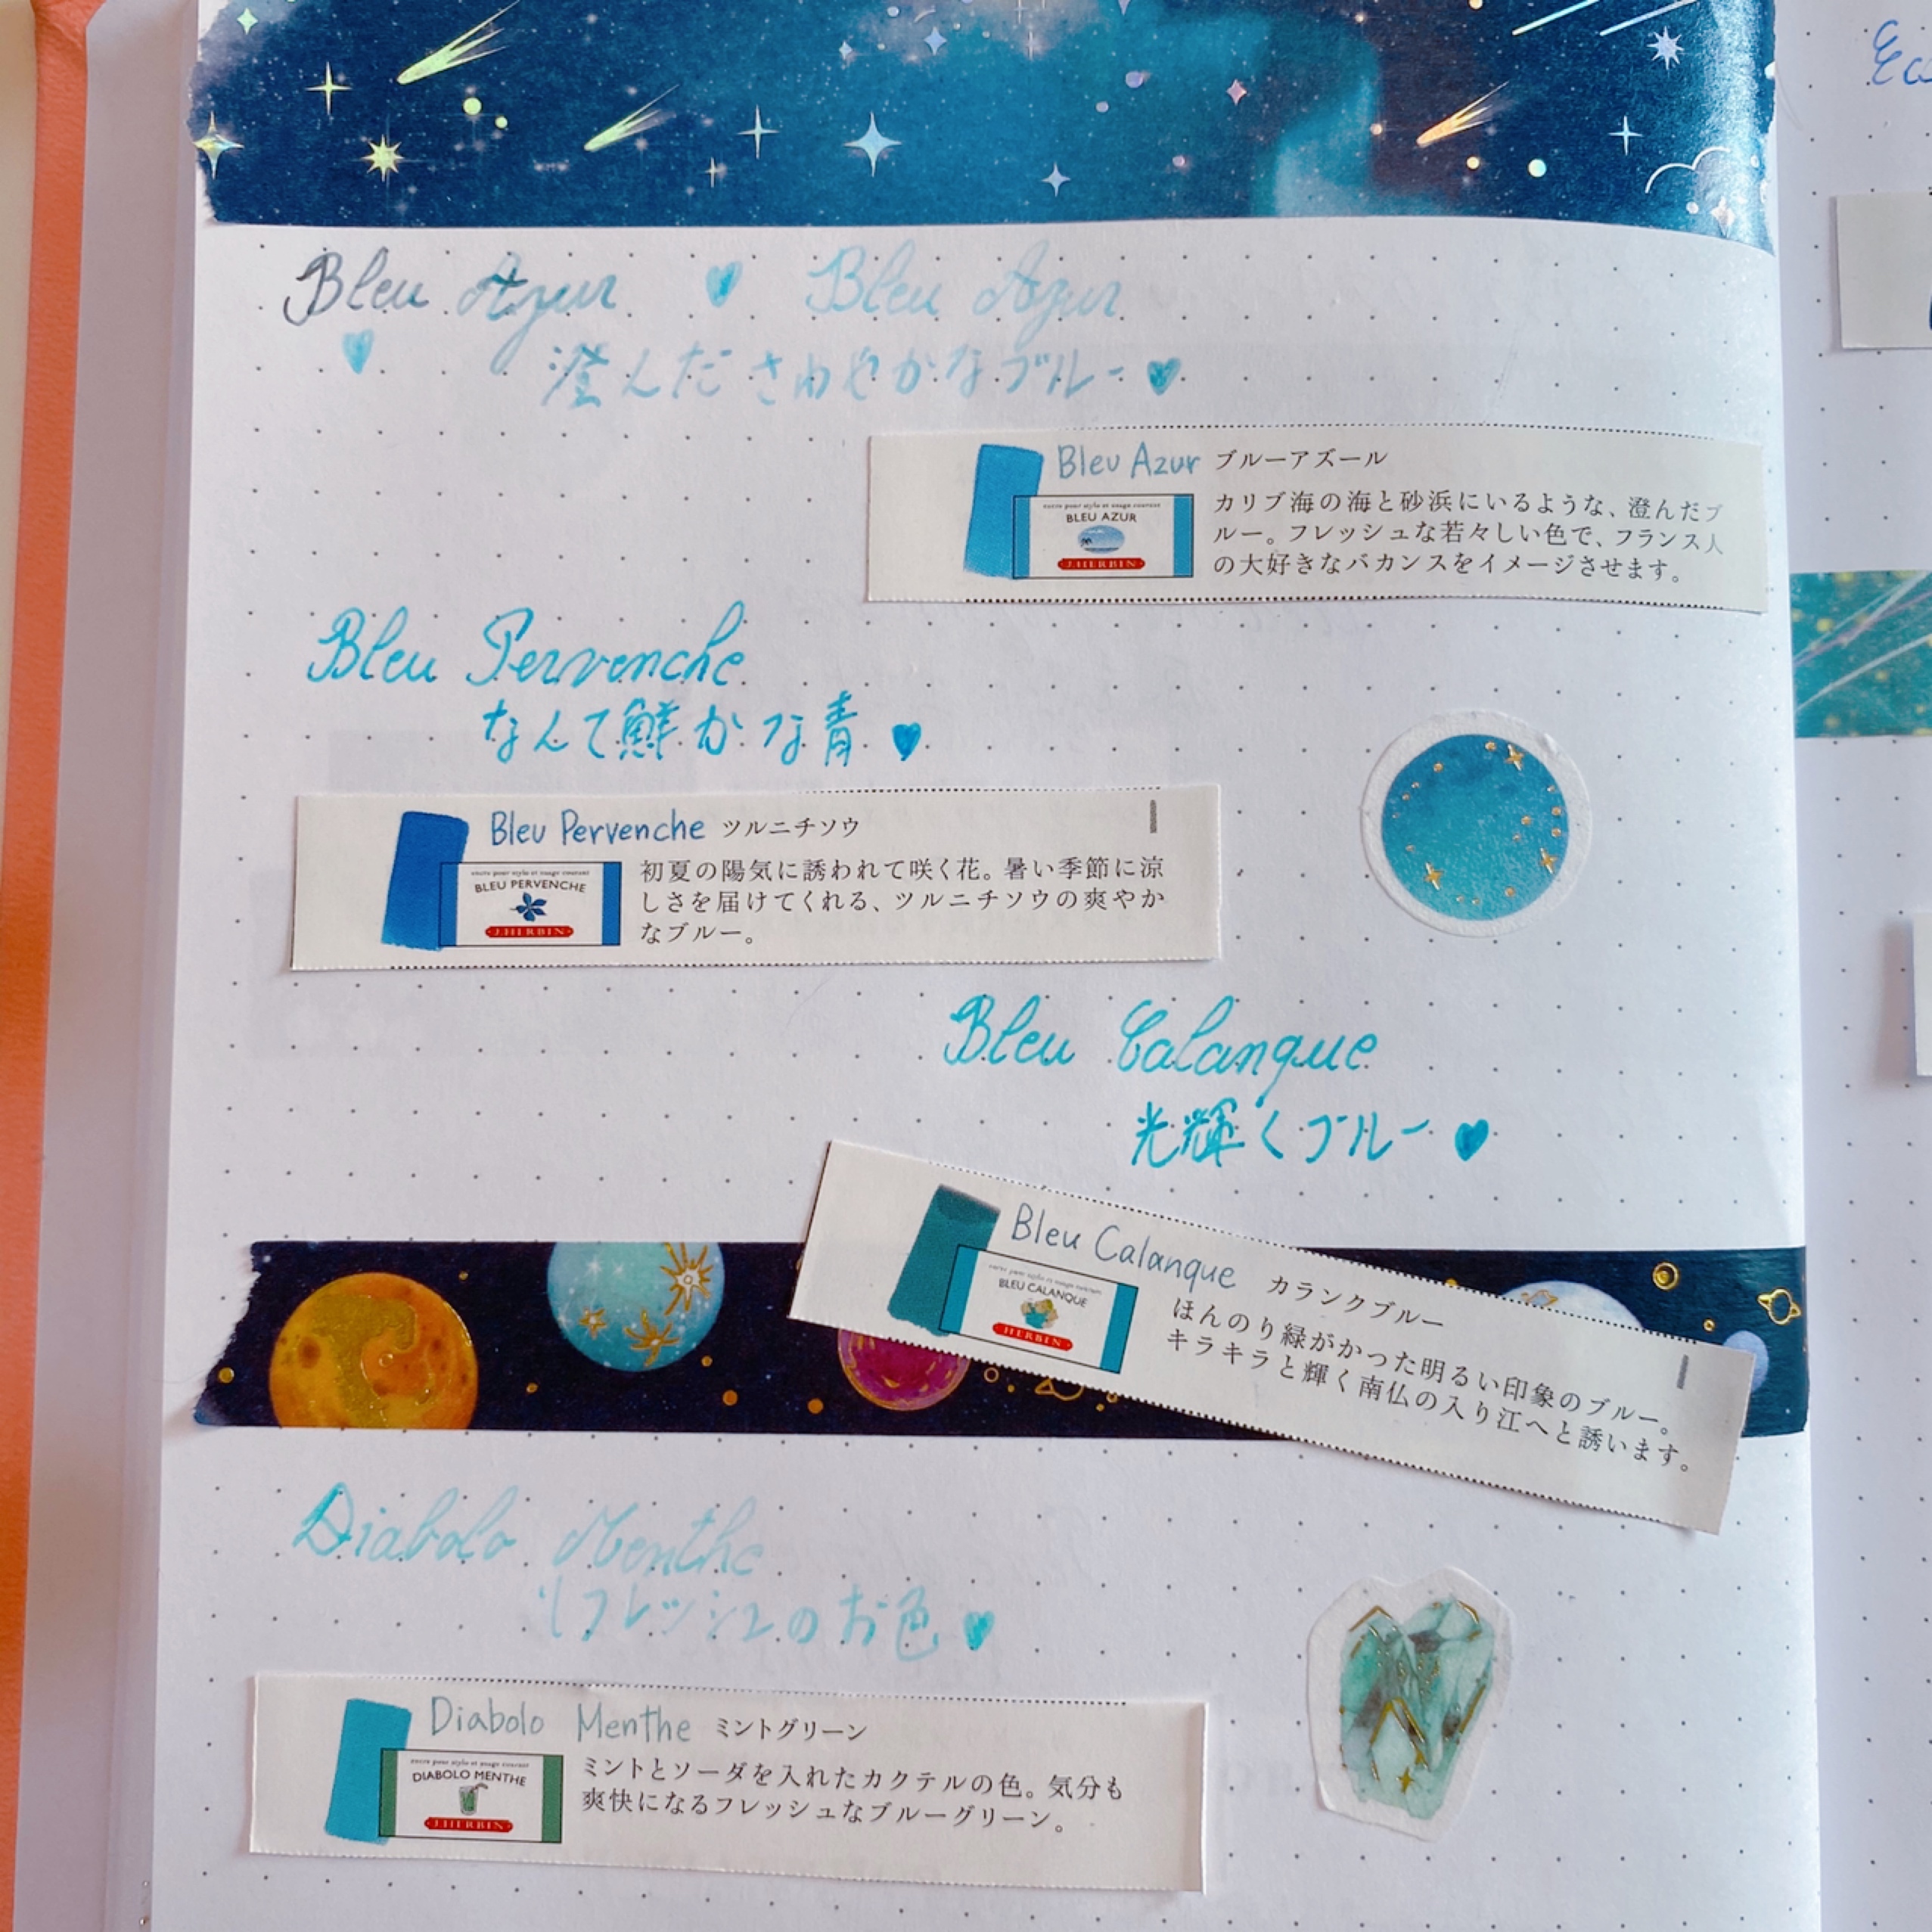 Bleu Azur ♥ Bleu Azur
♥ 澄んださわやかなブルー♥
Bleu Azur ブルーアズール
encre pour stylo et usage courant
BLEU AZUR
J.HERBIN
カリブ海の海と砂浜にいるような、澄んだブ
ルー。フレッシュな若々しい色で、フランス人
の大好きなバカンスをイメージさせます。
Bleu Pervenche
なんて鮮かな青♥
Bleu Pervenche ツルニチソウ
encre pour stylo et usage courant
BLEU PERVENCHE
J.HERBIN
初夏の陽気に誘われて咲く花。暑い季節に涼
しさを届けてくれる、ツルニチソウの爽やか
なブルー。
Bleu Calanque
光輝くブルー♥
Bleu Calanque カランクブルー
encre pour stylo et usage courant
BLEU CALANQUE
HERBIN
ほんのり緑がかった明るい印象のブルー。
キラキラと輝く南仏の入り江へと誘います。
Diabolo Menthe
リフレッシュのお色♥
Diabolo Menthe ミントグリーン
encre pour stylo et usage courant
DIABOLO MENTHE
J.HERBIN
ミントとソーダを入れたカクテルの色。気分も
爽快になるフレッシュなブルーグリーン。